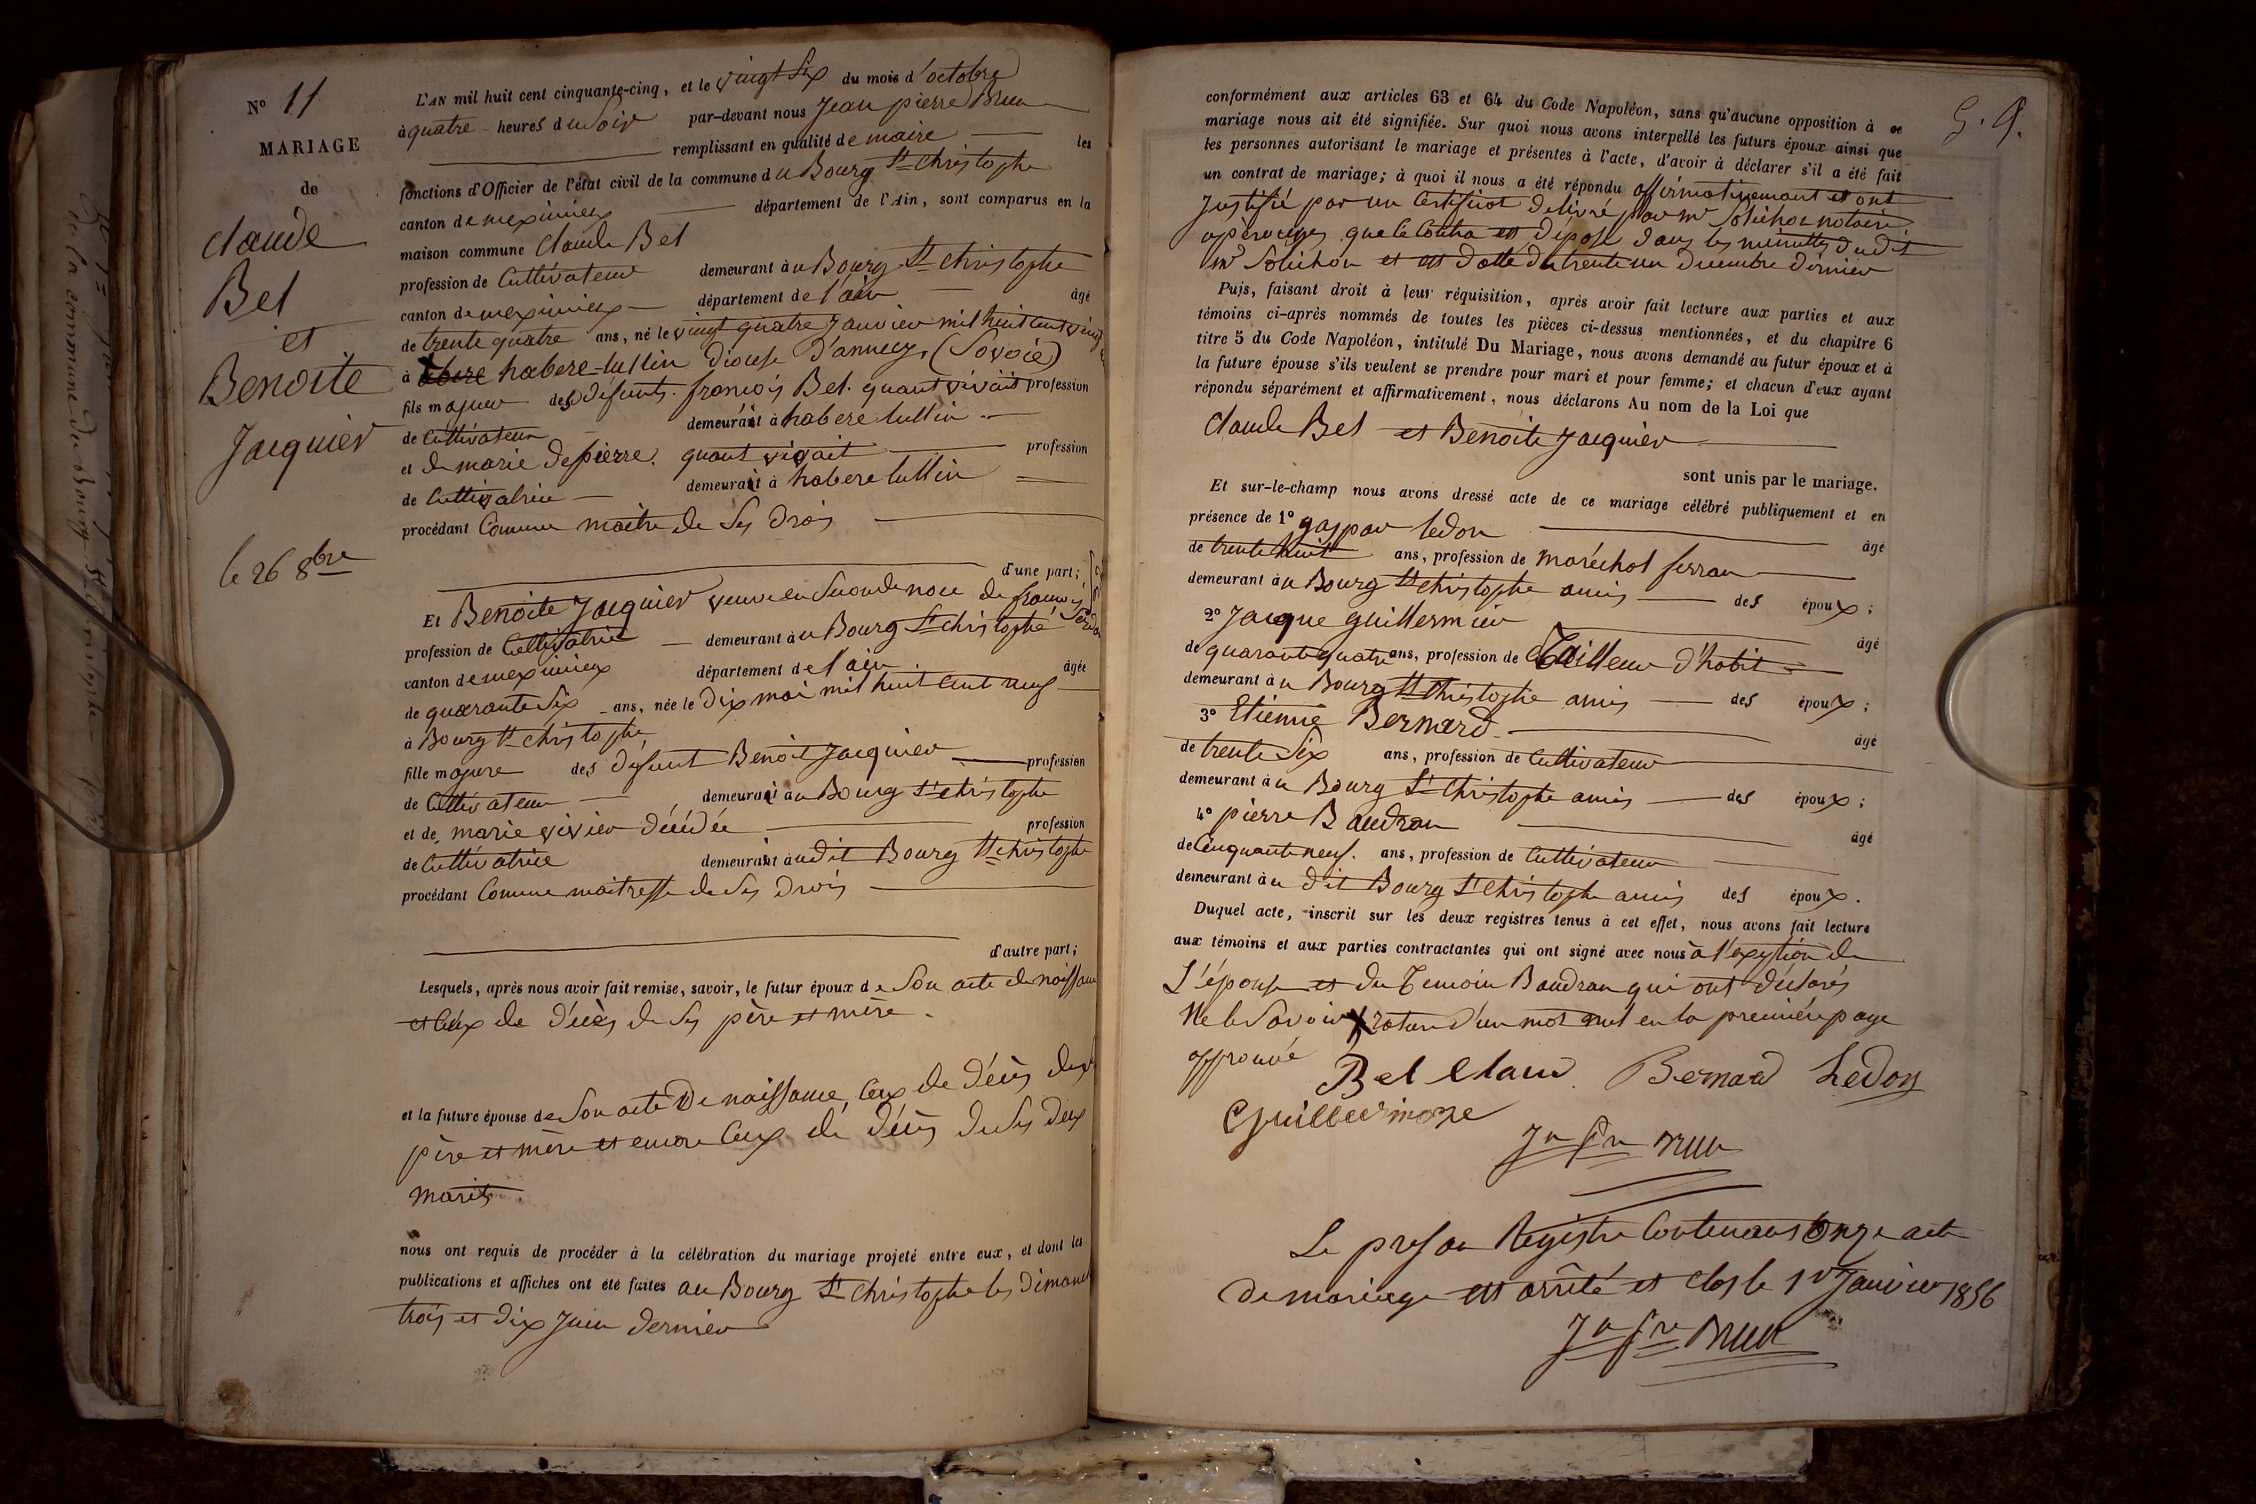 N° 11
MARIAGE
de
Claude
Bel
et
Benoite
Jacquier
le 26 8bre
L'AN mil huit cent cinquante-cinq, et le vingt Six du mois d'octobre
à quatre heures du Soir par-devant nous Jean pierre Brun
remplissant en qualité de maire les
fonctions d'Officier de l'état civil de la commune du Bourg St Christophe
canton de meximieux département de l'Ain, sont comparus en la
maison commune Claude Bel
profession de Cultivateur demeurant àu Bourg St Christophe
canton de meximieux département de l'ain âgé
de trente quatre ans, né le vingt quatre Janvier mil huit cent vingt
à habere-lullin Diouse D'annecy (Savoie)
fils majeur des défunts francois Bel. quant vivait profession
de Cultivateur demeurait à habere lullin
et de marie Depierre. quant vivait profession
de Cultivatrice demeurait à habere lullin
procédant Comme maitre de Ses Drois
d'une part;
Et Benoite Jacquier veuve en Seconde noce de francois
profession de Cultivatrice demeurant àu Bourg St Christophe
canton de meximieux département de l'ain âgée
de quarante Six ans, née le Dix mai mil huit cent neuf
à Bourg St Christophe
fille majure des défunt Benoit Jacquier profession
de Cultivateur demeurai àu Bourg St Christophe
et de marie vivier décédée profession
de Cultivatrice demeurait àudit Bourg St Christophe
procédant Comme maitresse de Ses Drois
d'autre part;
Lesquels, après nous avoir fait remise, savoir, le futur époux de Son acte de naissance
et Ceux de décès de Ses père et mère.
et la future épouse de Son acte De naissance, Ceux de décès de Ses
père et mère et encore Ceux de décès de Ses deux
marits.
nous ont requis de procéder à la célébration du mariage projeté entre eux, et dont les
publications et affiches ont été faites au Bourg St Christophe les Dimanche
trois et dix Juin dernier
conformément aux articles 63 et 64 du Code Napoléon, sans qu'aucune opposition à ce
mariage nous ait été signifiée. Sur quoi nous avons interpellé les futurs époux ainsi que
les personnes autorisant le mariage et présentes à l'acte, d'avoir à déclarer s'il a été fait
un contrat de mariage; à quoi il nous a été répondu affirmativement et ont
Justifié par un Certificat Delivré par mr Solichon notaire
a pérouges que le Contra est déposé dans les minuttes dudit
mr Solichon et est datté du trente un décembre dernier
Puis, faisant droit à leur réquisition, après avoir fait lecture aux parties et aux
témoins ci-après nommés de toutes les pièces ci-dessus mentionnées, et du chapitre 6
titre 5 du Code Napoléon, intitulé Du Mariage, nous avons demandé au futur époux et à
la future épouse s'ils veulent se prendre pour mari et pour femme; et chacun d'eux ayant
répondu séparément et affirmativement, nous déclarons Au nom de la Loi que
Claude Bel et Benoite Jacquier
sont unis par le mariage.
Et sur-le-champ nous avons dressé acte de ce mariage célébré publiquement et en
présence de 1° gaspar ledon âgé
de trente huit ans, profession de maréchal ferran
demeurant àu Bourg St Christophe amis des époux;
2° Jacque guillermier âgé
de quarante quatre ans, profession de Tailleur d'habit
demeurant àu Bourg St Christophe amis des époux;
3° Etienne Bernard âgé
de trente Six ans, profession de Cultivateur
demeurant àu Bourg St Christophe amis des époux;
4° pierre Baudran âgé
de Cinquante neuf. ans, profession de Cultivateur
demeurant àu dit Bourg St Christophe amis des époux.
Duquel acte, inscrit sur les deux registres tenus à cet effet, nous avons fait lecture
aux témoins et aux parties contractantes qui ont signé avec nous à l'exeption de
L'épouse et du Temoin Baudran qui ont déclarés
Ne le Savoir X rature d'un mot nul en la première page
approuvé
Bel Claud Bernard Ledon
Guillermoze
Jn Pre Brun
Le présan Registre Contenans Onze acte
de mariage est arrêté et clos le 1er Janvier 1856
Jn Pre Brun